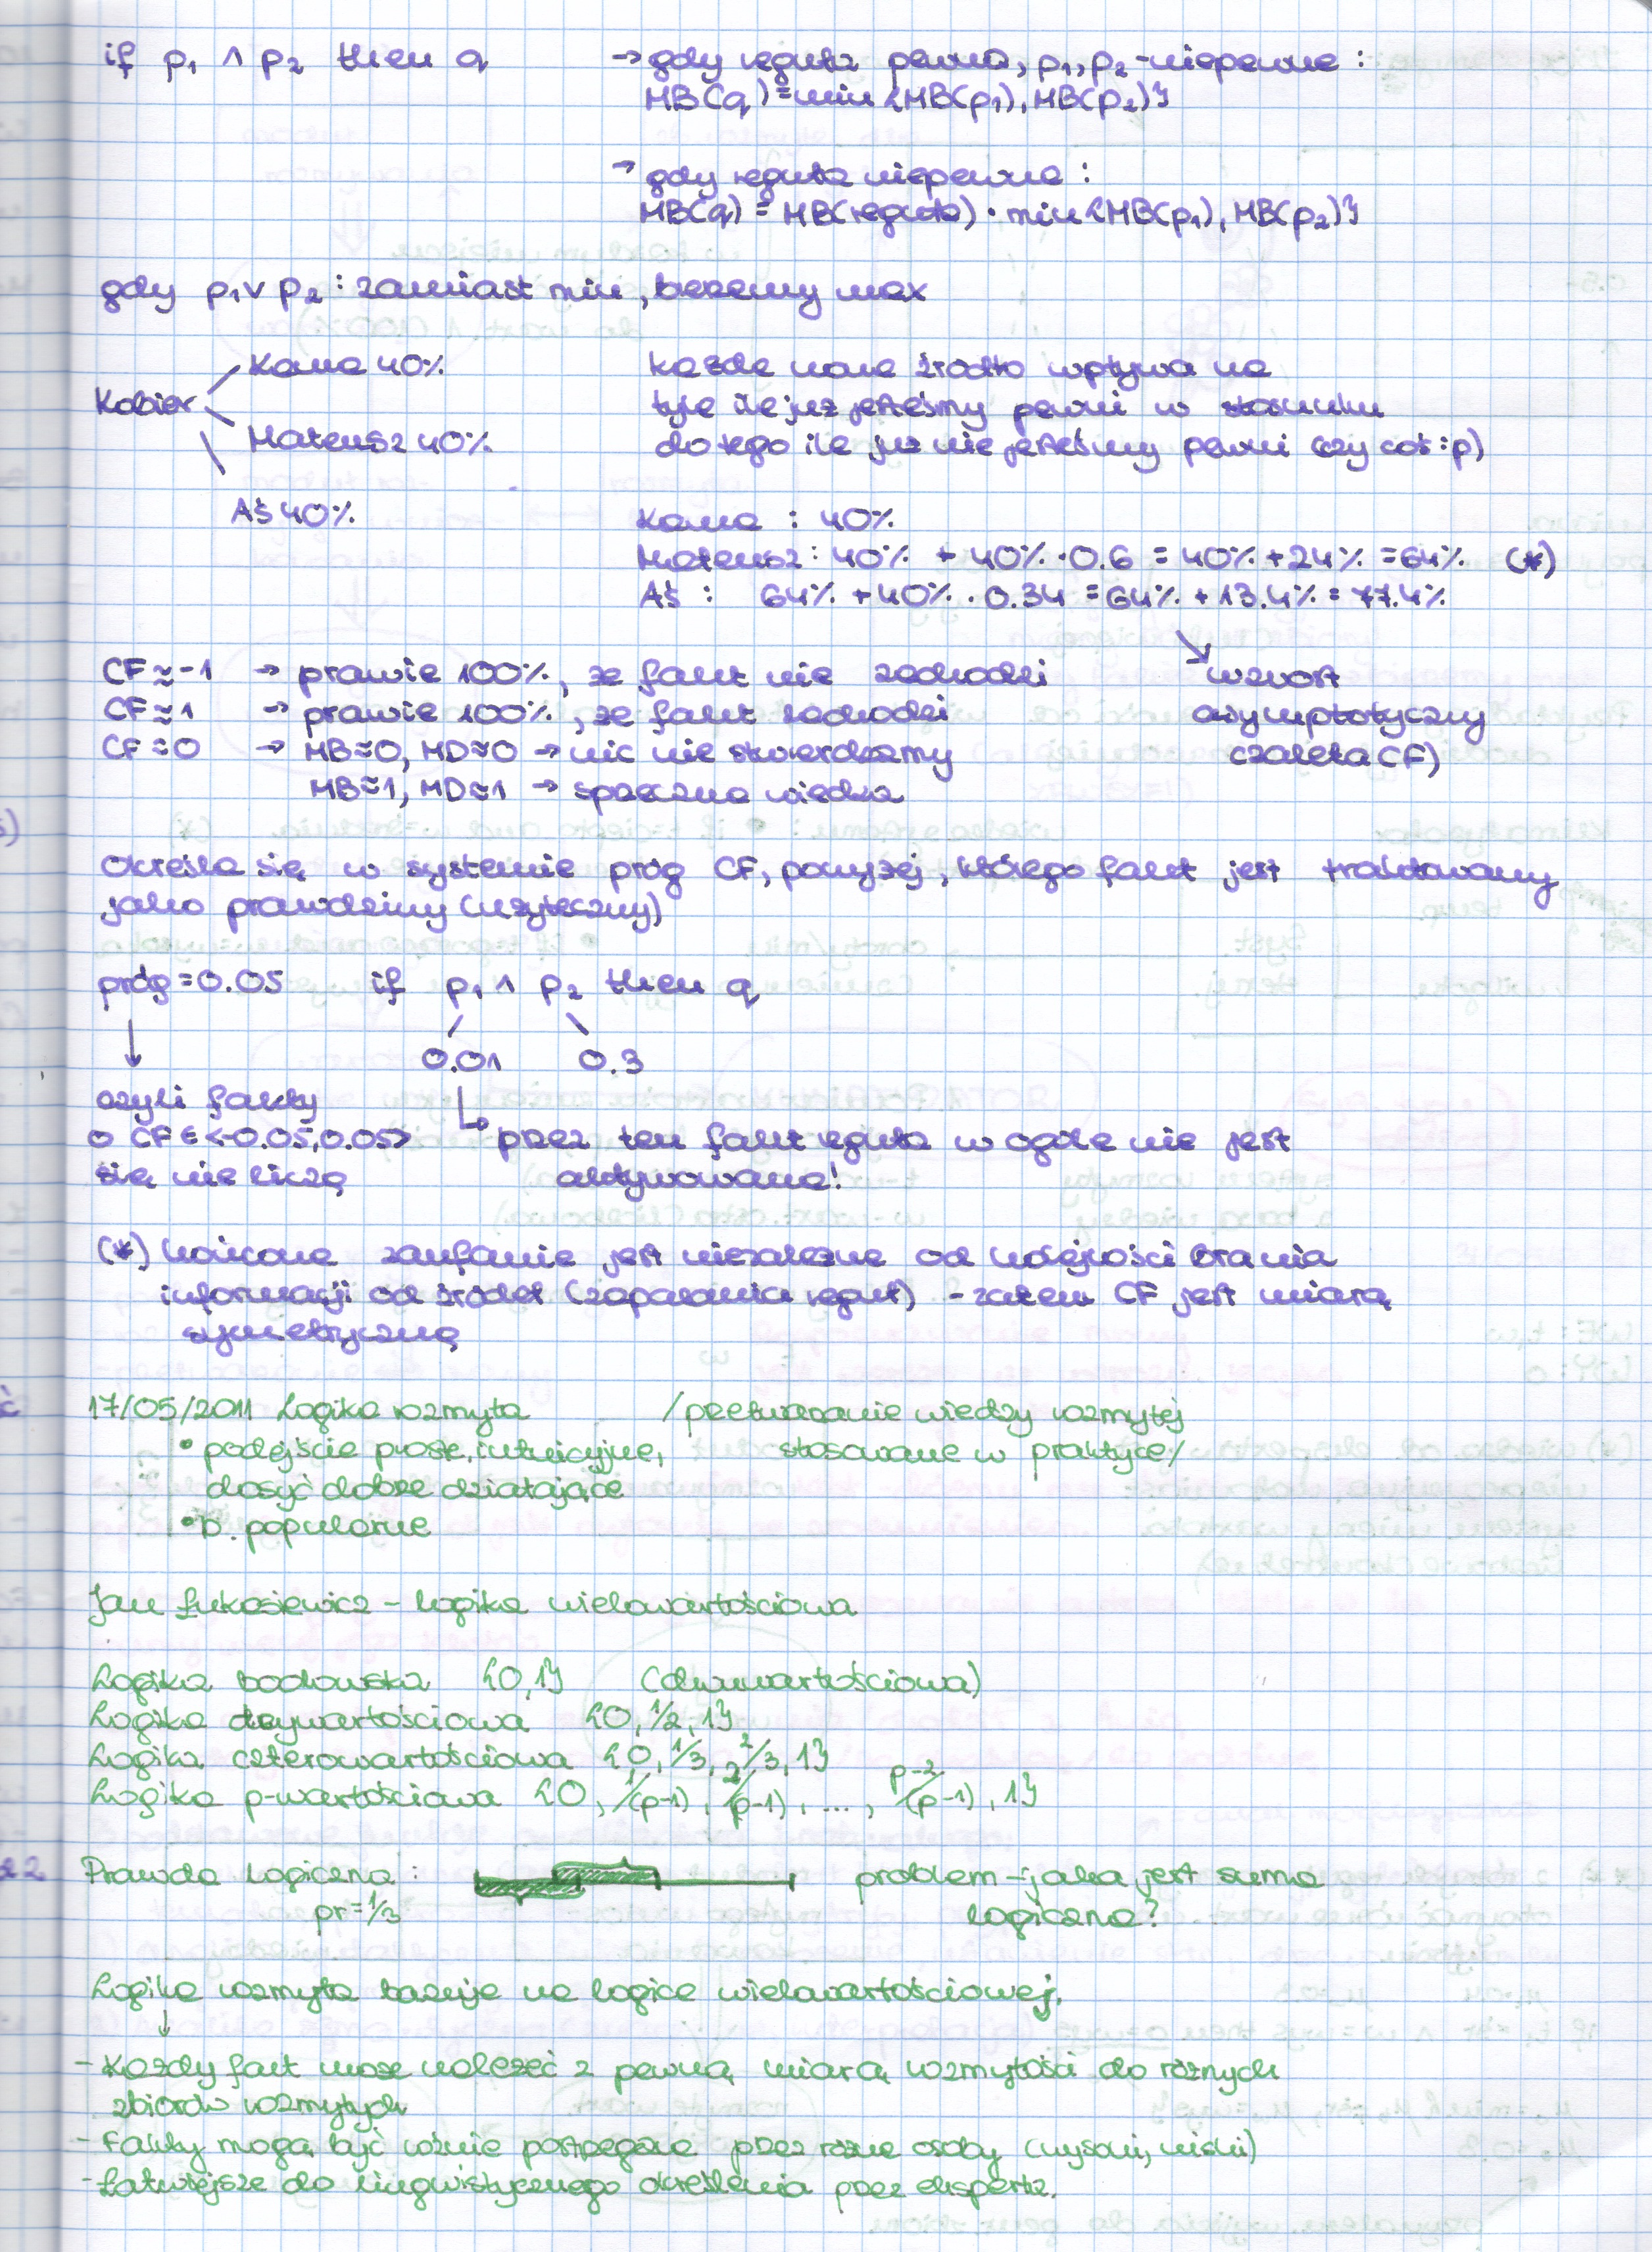 if p₁ ∧ p₂ then q → gdy reguła pewna, p₁, p₂ - niepewne :
MB(q) = min {MB(p₁), MB(p₂)}
→ gdy reguła niepewna :
MB(q) = MB(reguła) · min {MB(p₁), MB(p₂)}
gdy p₁ ∨ p₂ : zamiast min, bierzemy max
Kobier
Kama 40%
Mateusz 40%
Aś 40%
każde nowe źródło wpływa na
tyle ile już jesteśmy pewni w stosunku
do tego ile już nie jesteśmy pewni (czy coś :p)
Kama : 40%
Mateusz : 40% + 40% · 0.6 = 40% + 24% = 64% (*)
Aś : 64% + 40% · 0.34 = 64% + 13.4% = 77.4%
↘ wzrost
asymptotyczny
(zaleta CF)
CF ≈ -1 → prawie 100%, że fakt nie zachodzi
CF ≈ 1 → prawie 100%, że fakt zachodzi
CF ≈ 0 → MB ≈ 0, MD ≈ 0 → nic nie stwierdzamy
MB ≈ 1, MD ≈ 1 → sprzeczna wiedza
Określa się w systemie próg CF, powyżej, którego fakt jest traktowany
jako prawdziwy (użyteczny)
próg = 0.05 if p₁ ∧ p₂ then q
0.01 0.3
czyli fakty
o CF ∈ <-0.05, 0.05>
się nie liczą
przez ten fakt reguła w ogóle nie jest
aktywowana!
(*) końcowe zaufanie jest niezależne od kolejności brania
informacji od źródeł (zapalania reguł) - zatem CF jest miarą
symetryczną
17/05/2011 Logika rozmyta /przetwarzanie wiedzy rozmytej
• podejście proste, intuicyjne, stosowane w praktyce/
dosyć dobrze działające
• b. popularne
Jan Łukasiewicz - logika wielowartościowa
Logika boolowska {0,1} (dwuwartościowa)
Logika trzywartościowa {0, 1/2, 1}
Logika czterowartościowa {0, 1/3, 2/3, 1}
Logika p-wartościowa {0, 1/(p-1), 2/(p-1), ..., p-2/(p-1), 1}
Prawda logiczna : problem - jaka jest suma
pr = 1/3 logiczna?
Logika rozmyta bazuje na logice wielowartościowej.
↓
- Każdy fakt może należeć z pewną miarą rozmytości do różnych
zbiorów rozmytych
- Fakty mogą być różnie postrzegane przez różne osoby (wysoki, niski)
- Łatwiejsze do lingwistycznego określenia przez eksperta.